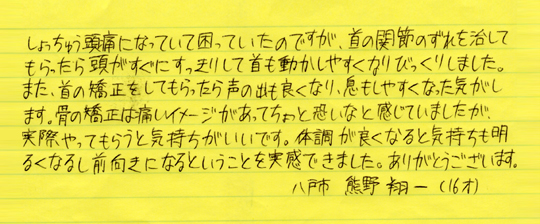 しょっちゅう頭痛になっていて困っていたのですが、首の関節のずれを治して
もらったら頭がすぐにすっきりして首も動かしやすくなりびっくりしました。
また、首の矯正をしてもらったら声の出も良くなり、息もしやすくなった気がし
ます。骨の矯正は痛いイメージがあってちょっと恐いなと感じていましたが、
実際やってもらうと気持ちがいいです。体調が良くなると気持ちも明
るくなるし前向きになるということを実感できました。ありがとうございます。
八戸市 熊野翔一(16才)